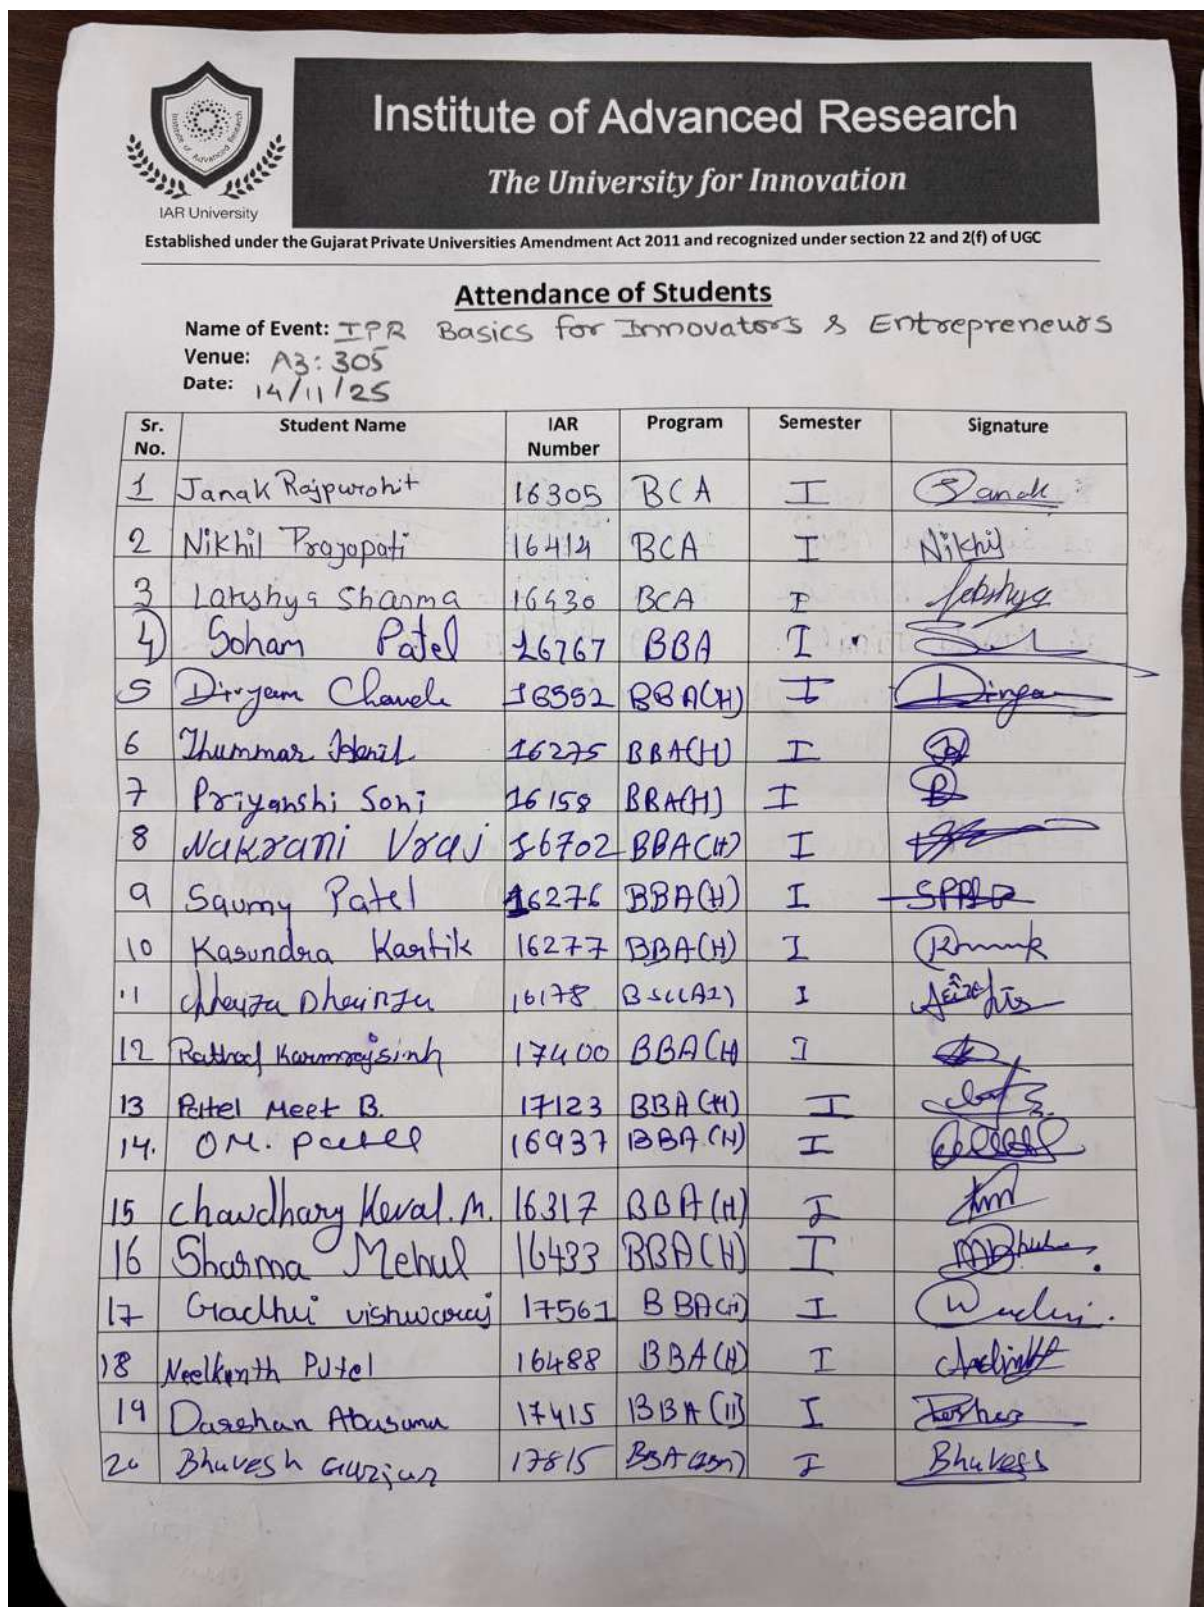 Institute of Advanced Research
The University for Innovation
Institute of Advanced Research
IAR University
Established under the Gujarat Private Universities Amendment Act 2011 and recognized under section 22 and 2(f) of UGC
Attendance of Students
Name of Event: IPR Basics for Innovators & Entrepreneurs
Venue: A3:305
Date: 14/11/25
Sr. No. Student Name IAR Number Program Semester Signature
1 Janak Rajpurohit 16305 BCA I Janak
2 Nikhil Prajapati 16414 BCA I Nikhil
3 Lakshya Sharma 16430 BCA I Lakshya
4) Soham Patel 16767 BBA I
5 16552 BBA(H) I
6 Thummar Henil 16275 BBA(H) I
7 Priyanshi Soni 16158 BBA(H) I
8 Nakrani Vraj 16702 BBA(H) I
9 Saumy Patel 16276 BBA(H) I
10 Kasundra Kartik 16277 BBA(H) I
11 16178 I
12 Rathod Karmrajsinh 17400 BBA(H) I
13 Patel Meet B. 17123 BBA(H) I
14. OM. Patel 16937 BBA.(H) I
15 Chawdhary Keval.M. 16317 BBA(H) I
16 Sharma Mehul 16433 BBA(H) I
17 Gadhvi vishwaraj 17561 BBA(H) I
18 Neelkanth Patel 16488 BBA(H) I
19 Darshan 17415 BBA(H) I
20 Bhavesh Gurjar 17815 I Bhavesh